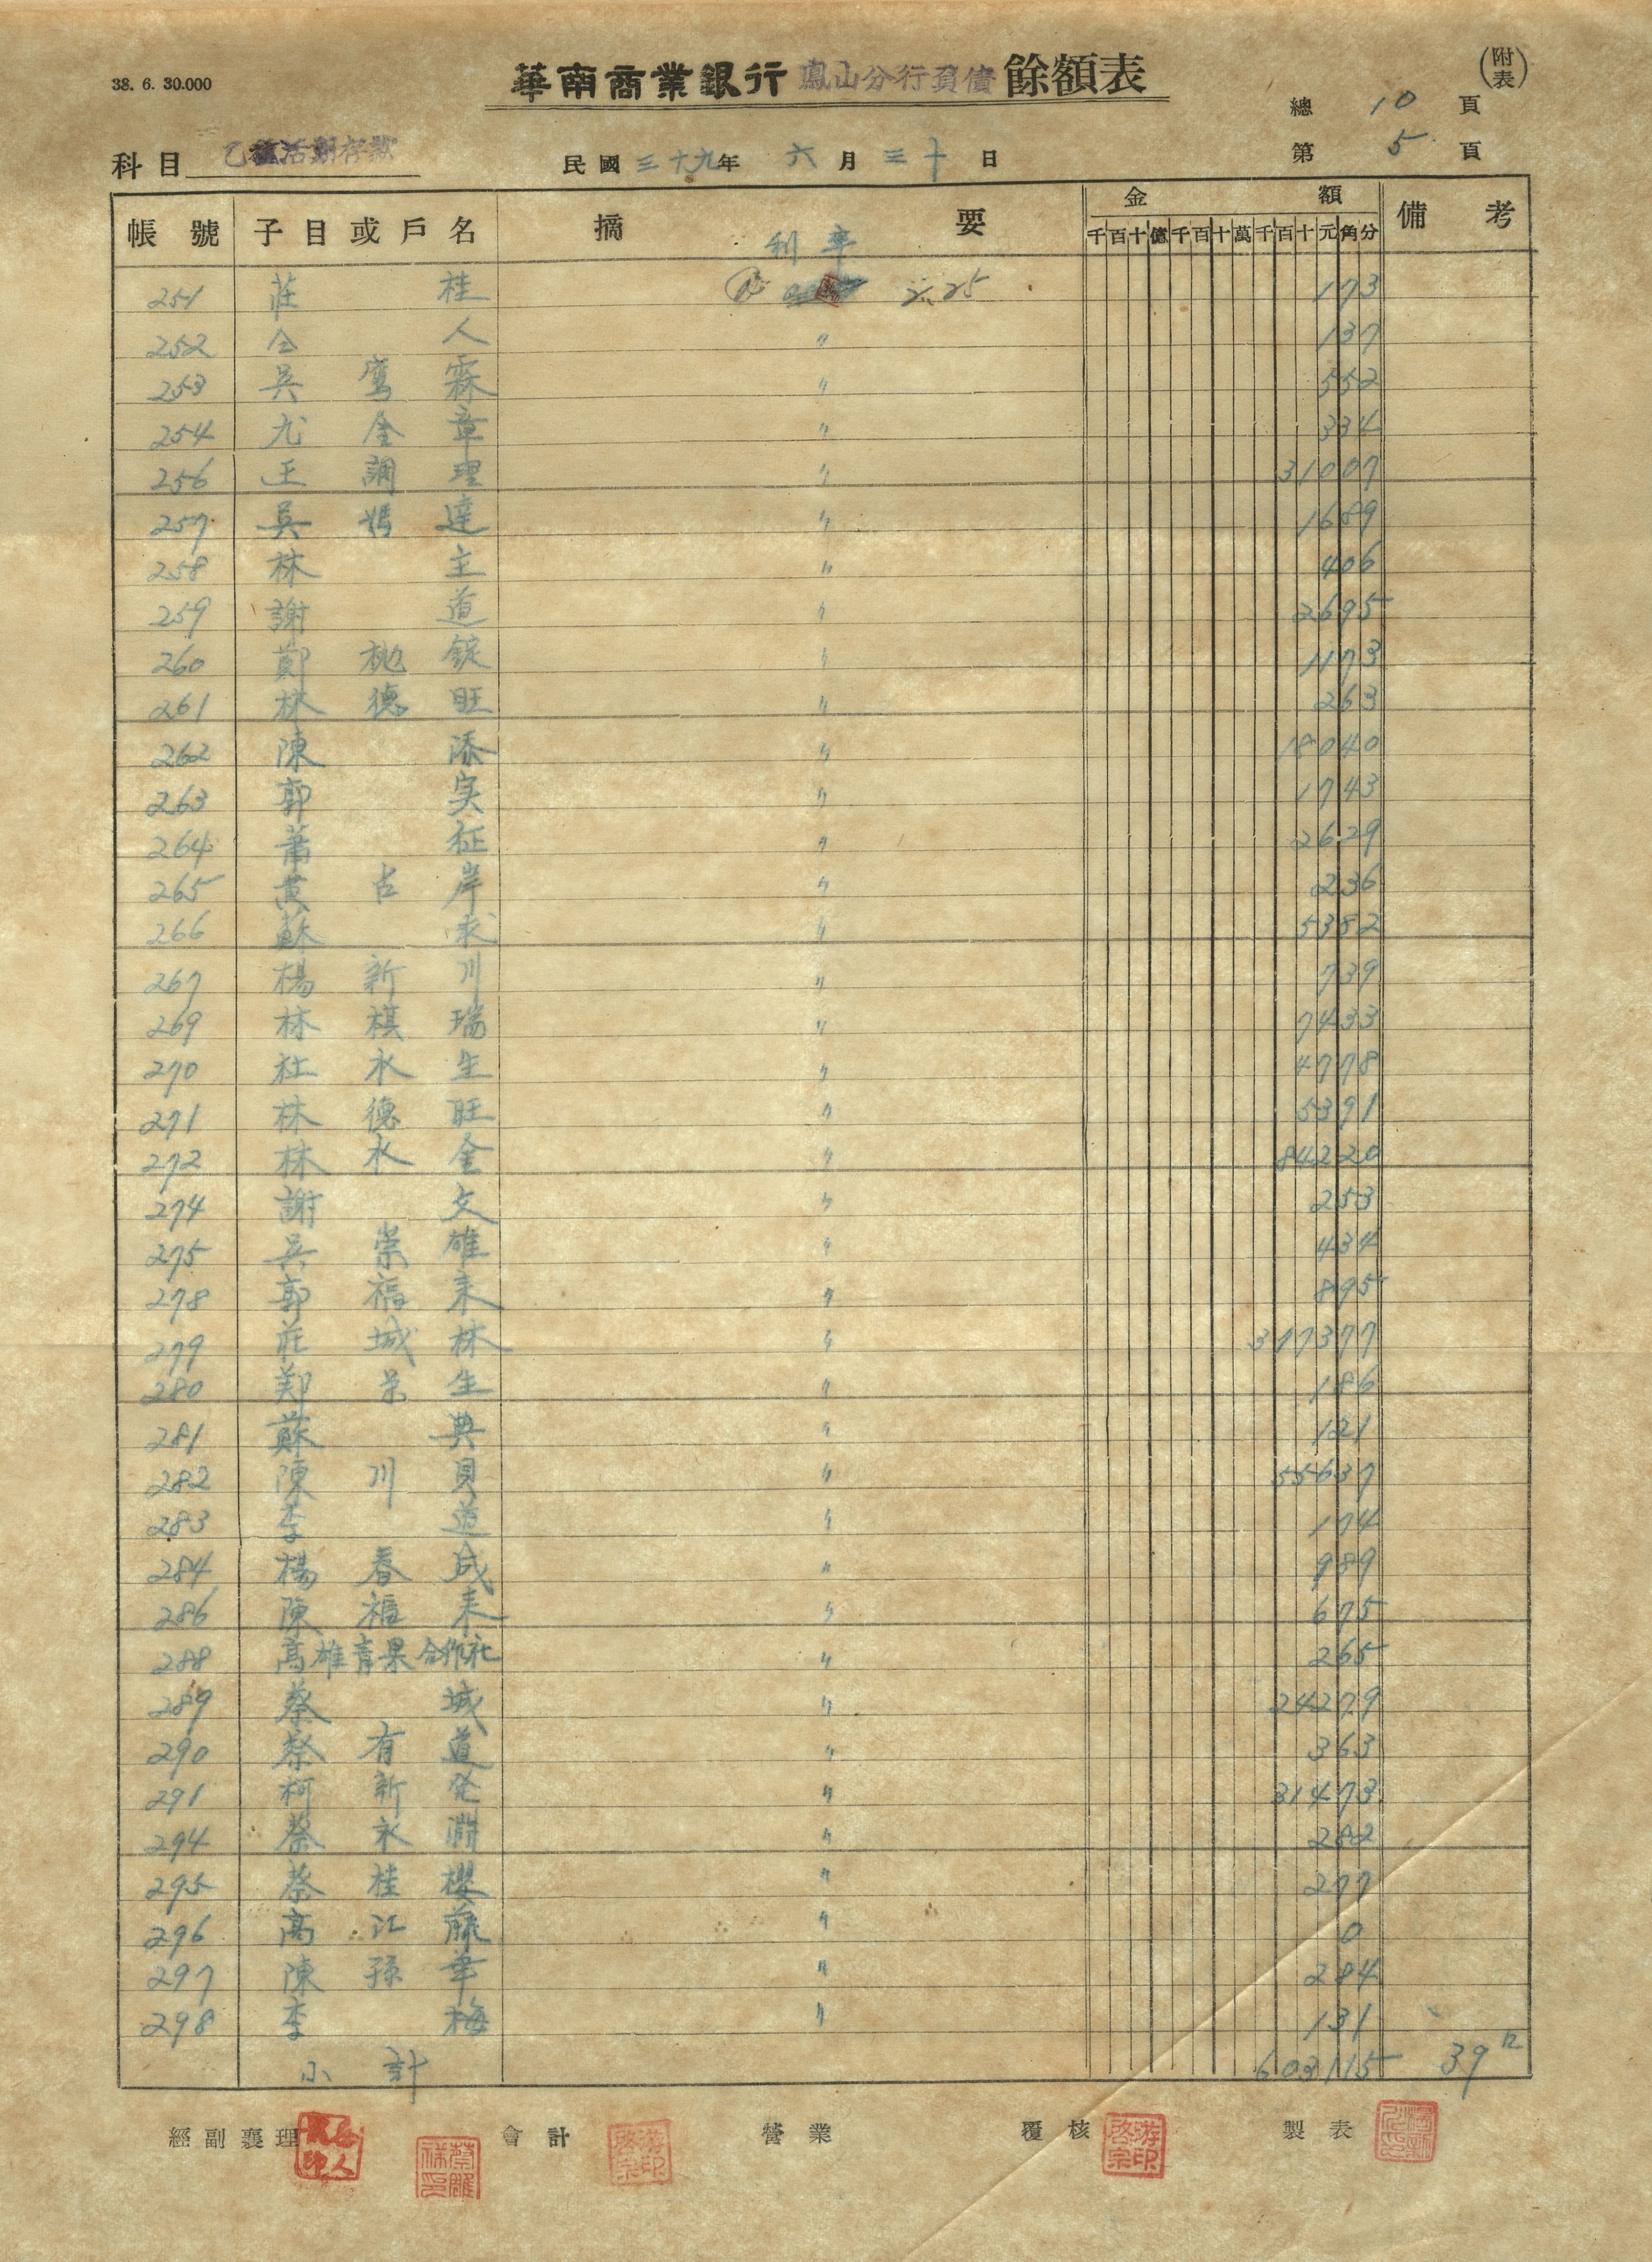 38. 6. 30.000
華南商業銀行 鳳山分行負債 餘額表
(附表)
總 10 頁
科目 乙種活期存款
民國 三十九 年 六 月 三十 日
第 5 頁
帳號 子目或戶名 摘要 金額 備考
千百十億千百十萬千百十元角分
利率
251 莊 桂 2.25 173
252 仝 人 〃 137
253 吳 鸞 霖 〃 552
254 尤 金 章 〃 334
256 王 調 理 〃 31007
257 吳 媽 達 〃 1689
258 林 主 〃 406
259 謝 道 〃 2695
260 鄭 錠 〃 1173
261 林 德 旺 〃 263
262 陳 添 〃 18040
263 郭 実 〃 1743
264 蕭 征 〃 2629
265 黃 占 岸 〃 236
266 蘇 求 〃 5382
267 楊 新 川 〃 739
269 林 棋 瑞 〃 7433
270 杜 水 生 〃 4778
271 林 德 旺 〃 5391
272 林 水 金 〃 84220
274 謝 文 〃 253
275 吳 崇 雄 〃 434
278 郭 福 来 〃 895
279 莊 城 林 〃 317377
280 鄭 生 〃 186
281 蘇 典 〃 121
282 陳 川 貝 〃 55637
283 李 道 〃 174
284 楊 春 成 〃 989
286 陳 福 来 〃 675
288 高雄青果合作社 〃 265
289 蔡 城 〃 24279
290 蔡 有 道 〃 363
291 柯 新 発 〃 31473
294 蔡 永 淵 〃 282
295 蔡 桂 櫻 〃 277
296 高 江 藤 〃 0
297 陳 孫 華 〃 284
298 李 梅 〃 131
小計 603115 39口
經副襄理 會計 營業 覆核 製表
游印啓宗
游印啓宗